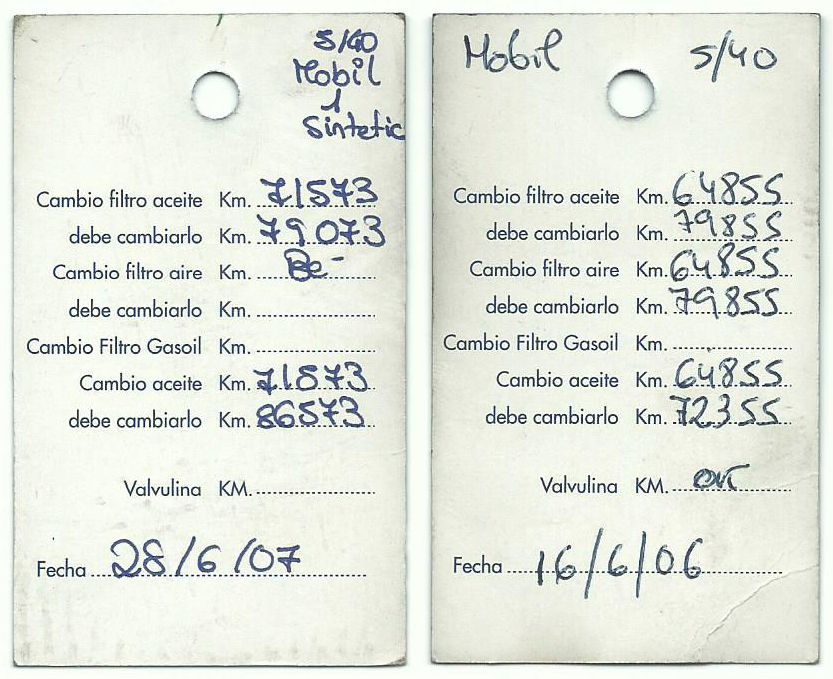 5/40
Mobil
1
Sintetic
Cambio filtro aceite Km. 71573
debe cambiarlo Km. 79073
Cambio filtro aire Km. Be-
debe cambiarlo Km.
Cambio Filtro Gasoil Km.
Cambio aceite Km. 71573
debe cambiarlo Km. 86573
Valvulina KM.
Fecha 28/6/07
Mobil 5/40
Cambio filtro aceite Km. 64855
debe cambiarlo Km. 79855
Cambio filtro aire Km. 64855
debe cambiarlo Km. 79855
Cambio Filtro Gasoil Km.
Cambio aceite Km. 64855
debe cambiarlo Km. 72355
Valvulina KM.
Fecha 16/6/06